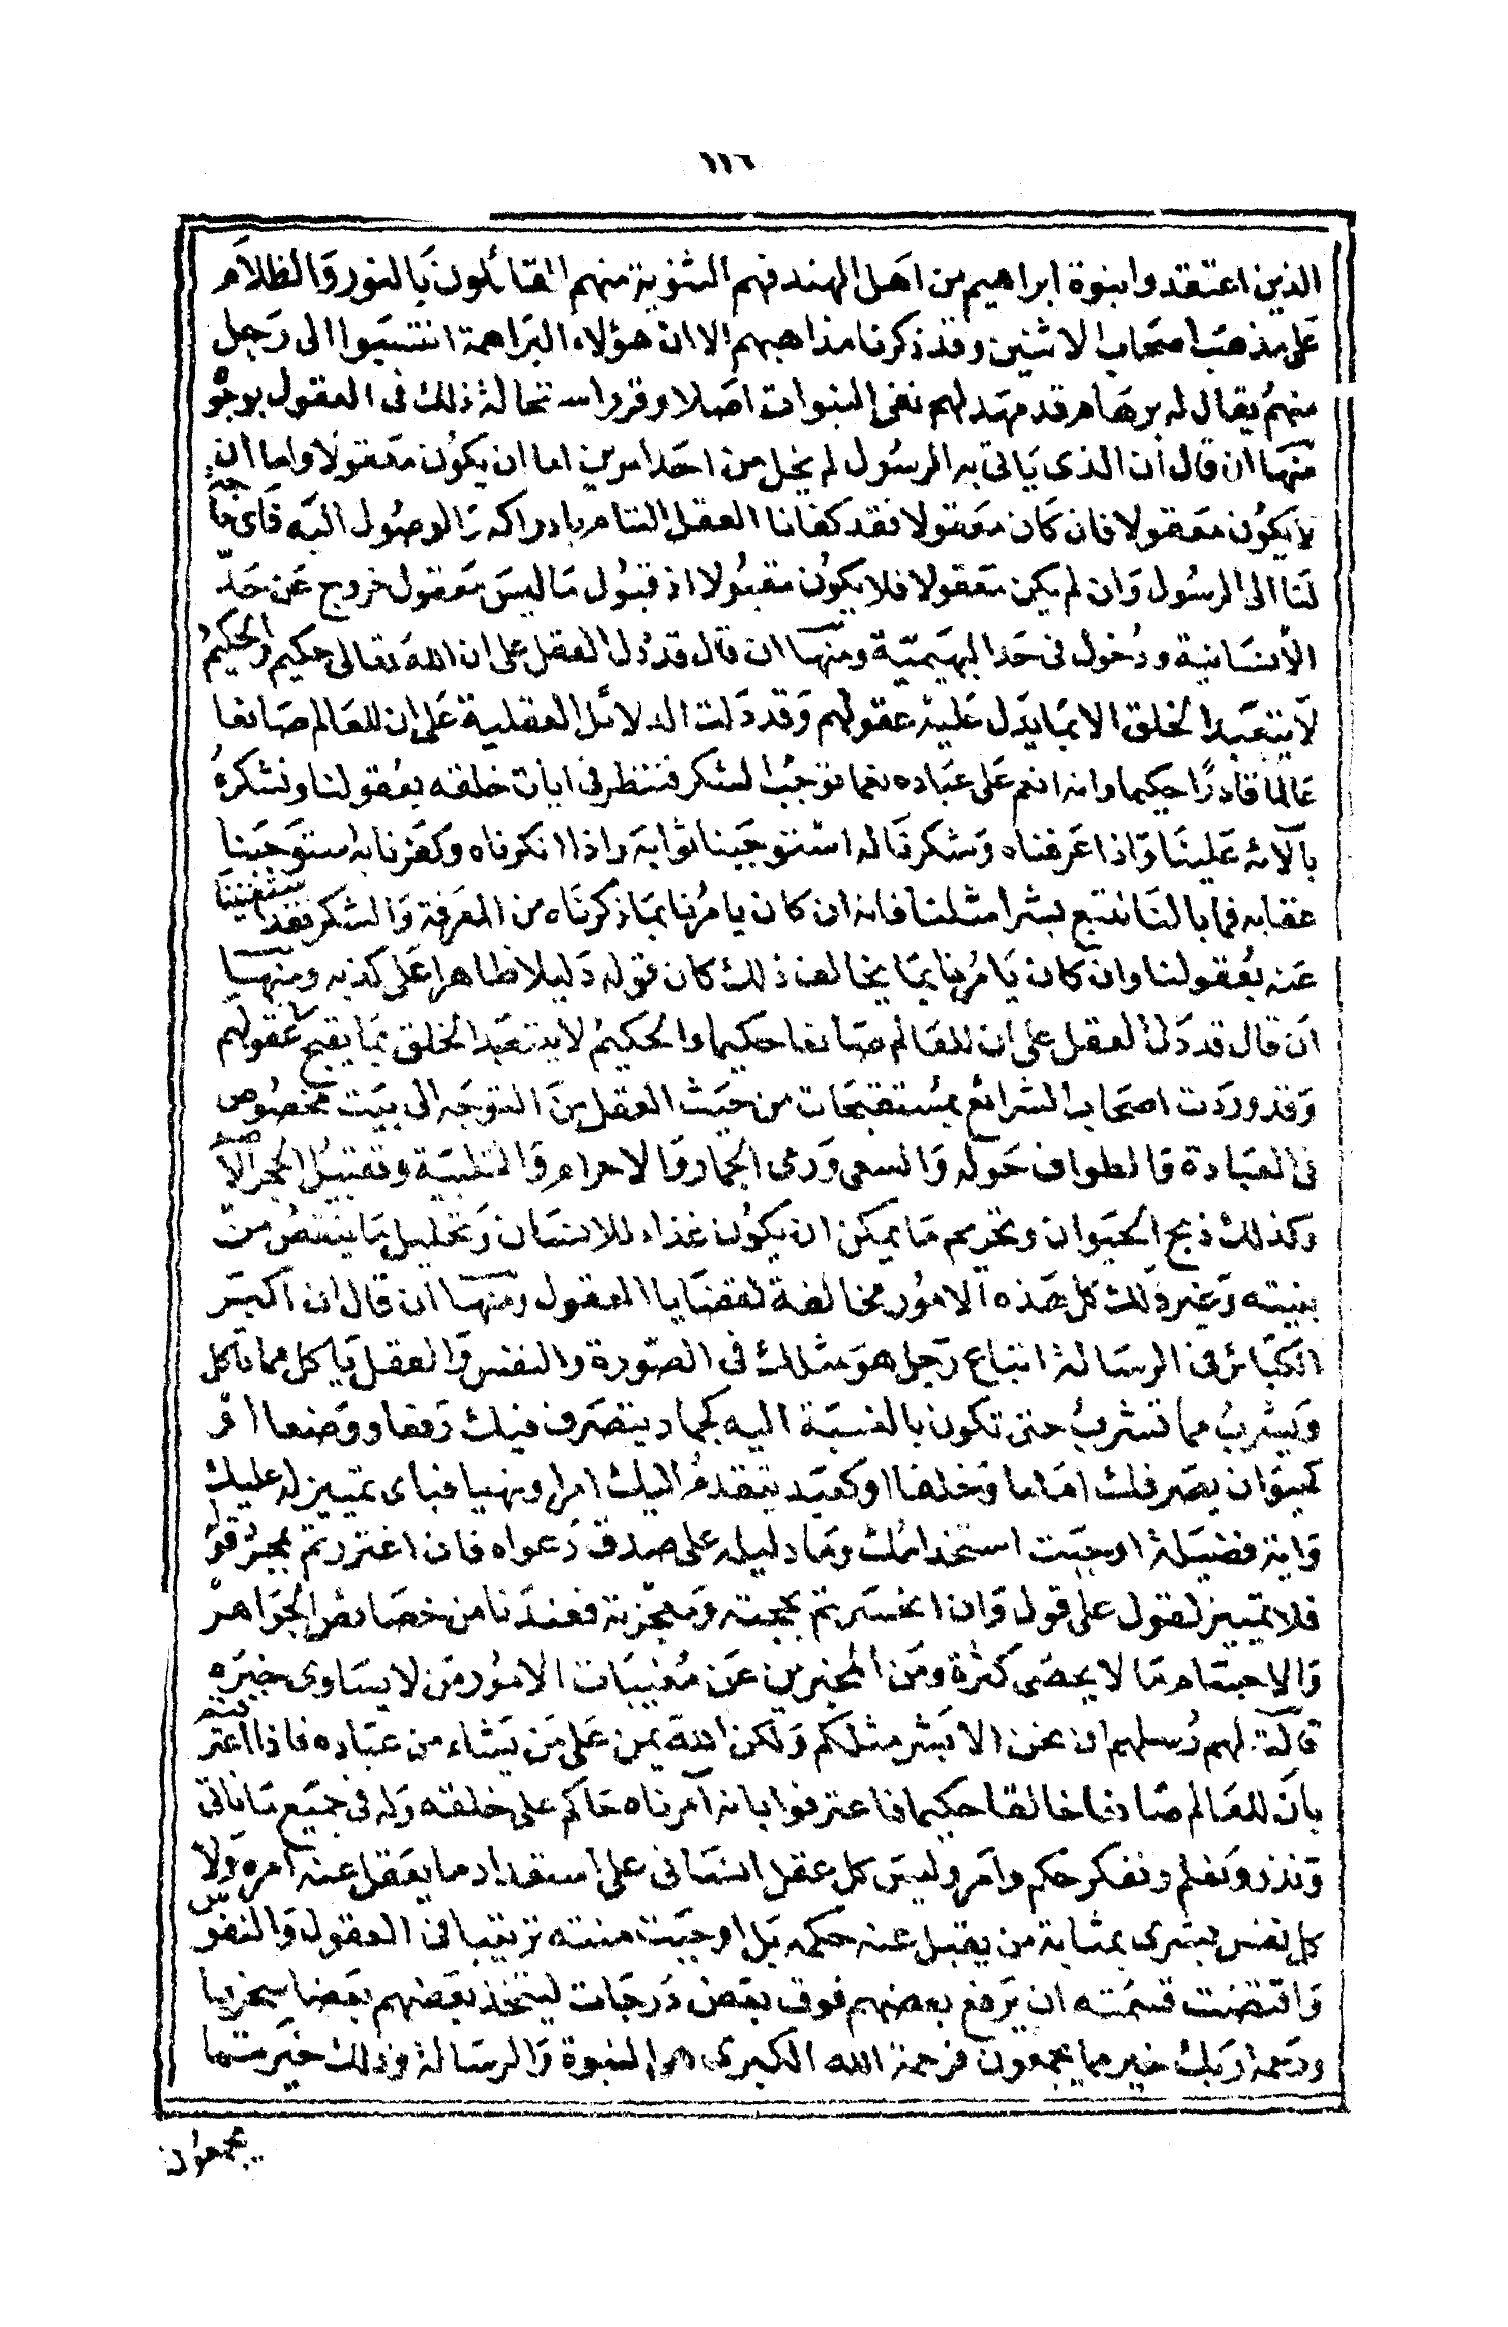 ١١٦
الذين اعتقدوا نبوة ابراهيم من اهل الهند فهم الثنوية منهم القائلون بالنور والظلام
على مذهب اصحاب الاثنين وقد ذكرنا مذاهبهم الا ان هؤلاء البراهمة انتسبوا الى رجل
منهم يقال له برهام قد مهد لهم نفى النبوات اصلا وقرر استحالة ذلك فى العقول بوجوه
منها ان قال أن الذى ياتى به الرسول لم يخل من احد امرين اما ان يكون معقولا واما ان
لا يكون معقولا فان كان معقولا فقد كفانا العقل التام بادراكه والوصول اليه فاى حاجة
لنا الى الرسول وان لم يكن معقولا فلا يكون مقبولا اذ قبول ما ليس معقول خروج عن حد
الأنسانية ودخول فى حد البهيمية ومنها ان قال قد دل العقل على ان الله تعالى حكيم والحكيم
لا يتعبد الخلق الا بما يدل عليه عقولهم وقد دلت الدلائل العقلية على ان للعالم صانعا
عالما قادرا حكيما وانه انعم على عباده نعما توجب الشكر فننظر فى ايات خلقه بعقولنا ونشكره
بآلائه علينا واذا عرفناه وشكرنا له استوجبنا ثوابه واذا انكرناه وكفرنا به استوجبنا
عقابه فما بالنا نتبع بشرا مثلنا فانه ان كان يامرنا بما ذكرناه من المعرفة والشكر فقد استغنينا
عنه بعقولنا وان كان يامرنا بما يخالف ذلك كان قوله دليلا ظاهرا على كذبه ومنها
ان قال قد دل العقل على ان للعالم صانعا حكيما والحكيم لا يتعبد الخلق بما يقبح عقولهم
وقد وردت اصحاب الشرائع بمستقبحات من حيث العقل من التوجه الى بيت مخصوص
فى العبادة والطواف حوله والسعى ورمى الجمار والاحرام والتلبية وتقبيل الحجر الاصم
وكذلك ذبح الحيوان وتحريم ما يمكن ان يكون غذاء للانسان وتحليل ما ينتقص من
بنيته وغير ذلك كل هذه الامور مخالفة لقضايا العقول ومنها ان قال ان اكبر
الكبائر فى الرسالة اتباع رجل هو مثلك فى الصورة والنفس والعقل ياكل مما تاكل
ويشرب مما تشرب حتى تكون بالنسبة اليه كجماد يتصرف فيك رفعا ووضعا او
كحيوان يصرفك اماما وخلفا او كعبد يتقدم اليك امرا ونهيا فباى تمييز له عليك
واية فضيلة اوجبت استخدامك وما دليله على صدق دعواه فان اغتررتم بمجرد قوله
فلا تمييز لقول على قول وان انحسرتم بحجته ومعجزته فعندنا من خصائص الجواهر
والاجسام ما لا يحصى كثرة ومن المخبرين عن مغيبات الامور من لا يساوى خبره
قالت لهم رسلهم ان نحن الا بشر مثلكم ولكن الله يمن على من يشاء من عباده فاذا اعترفتم
بان للعالم صانعا خالقا حكيما فاعترفوا بانه آمر ناه حاكم على خلقه وله فى جميع ما ناتى
ونذر ونعلم ونفكر حكم وامر وليس كل عقل انسانى على استعداد ما يعقل عنه امره ولا
كل نفس بشرى بمثابة من يقبل عنه حكمه بل اوجبت منته ترتيبا فى العقول والنفوس
واقتضت قسمته ان يرفع بعضهم فوق بعض درجات ليتخذ بعضهم بعضا سخريا
ورحمة ربك خير مما يجمعون فرحمة الله الكبرى هو النبوة والرسالة وذلك خير مما
يجمعون